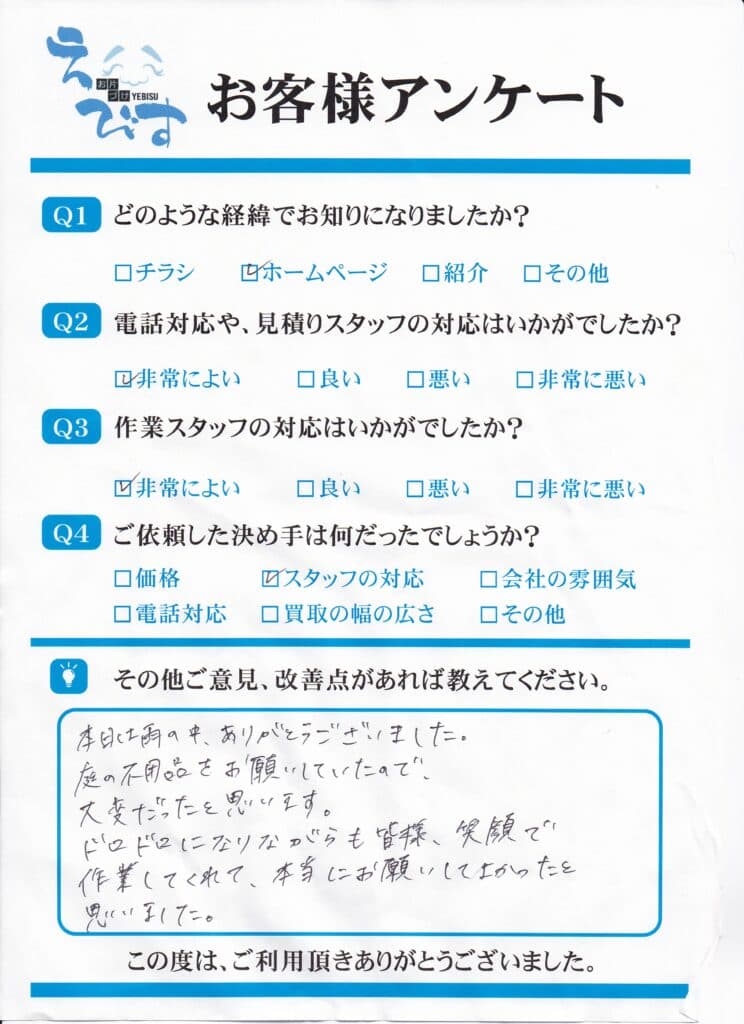 えびす
お片づけ YEBISU
お客様アンケート
Q1 どのような経緯でお知りになりましたか?
□チラシ ☑ホームページ □紹介 □その他
Q2 電話対応や、見積りスタッフの対応はいかがでしたか?
☑非常によい □良い □悪い □非常に悪い
Q3 作業スタッフの対応はいかがでしたか?
☑非常によい □良い □悪い □非常に悪い
Q4 ご依頼した決め手は何だったでしょうか?
□価格 ☑スタッフの対応 □会社の雰囲気
□電話対応 □買取の幅の広さ □その他
その他ご意見、改善点があれば教えてください。
本日は雨の中、ありがとうございました。
庭の不用品をお願いしていたので、
大変だったと思います。
ドロドロになりながらも皆様、笑顔で
作業してくれて、本当にお願いしてよかったと
思いました。
この度は、ご利用頂きありがとうございました。